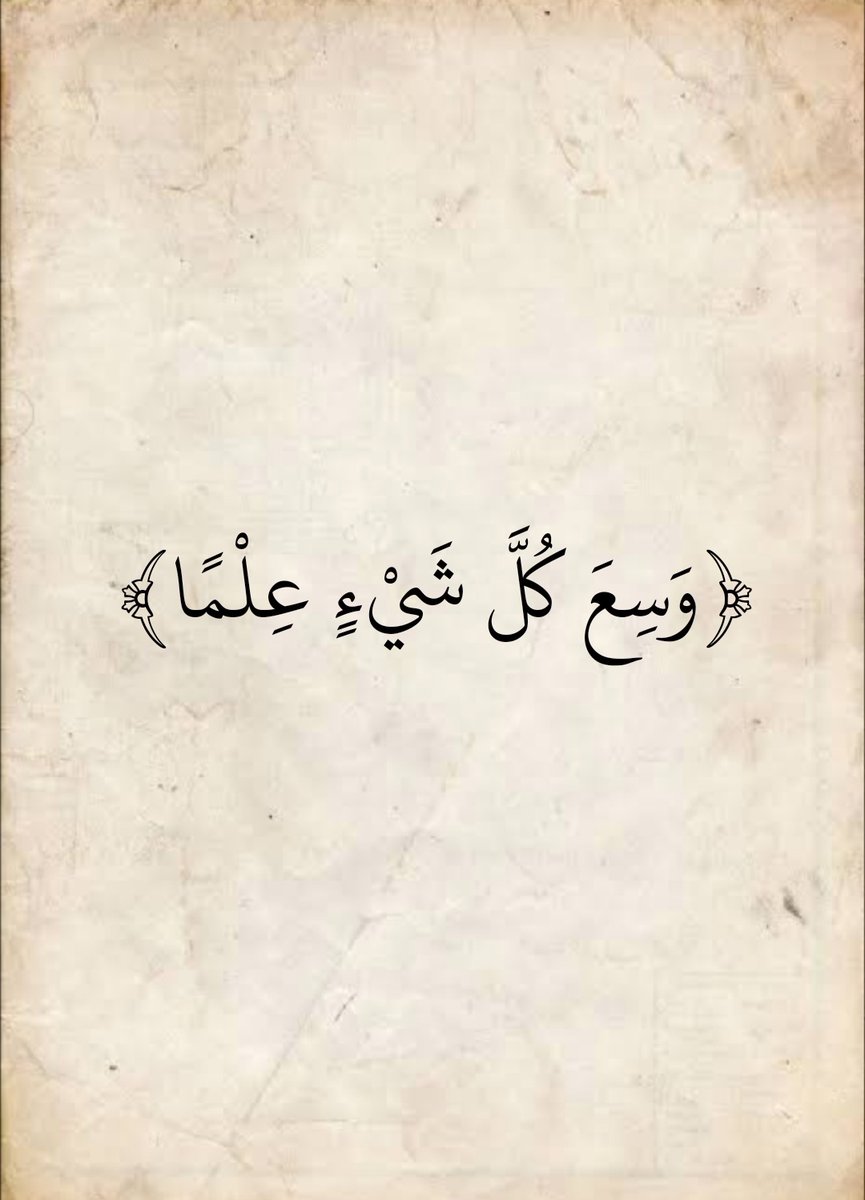 ﴿وَسِعَ كُلَّ شَيْءٍ عِلْمًا﴾